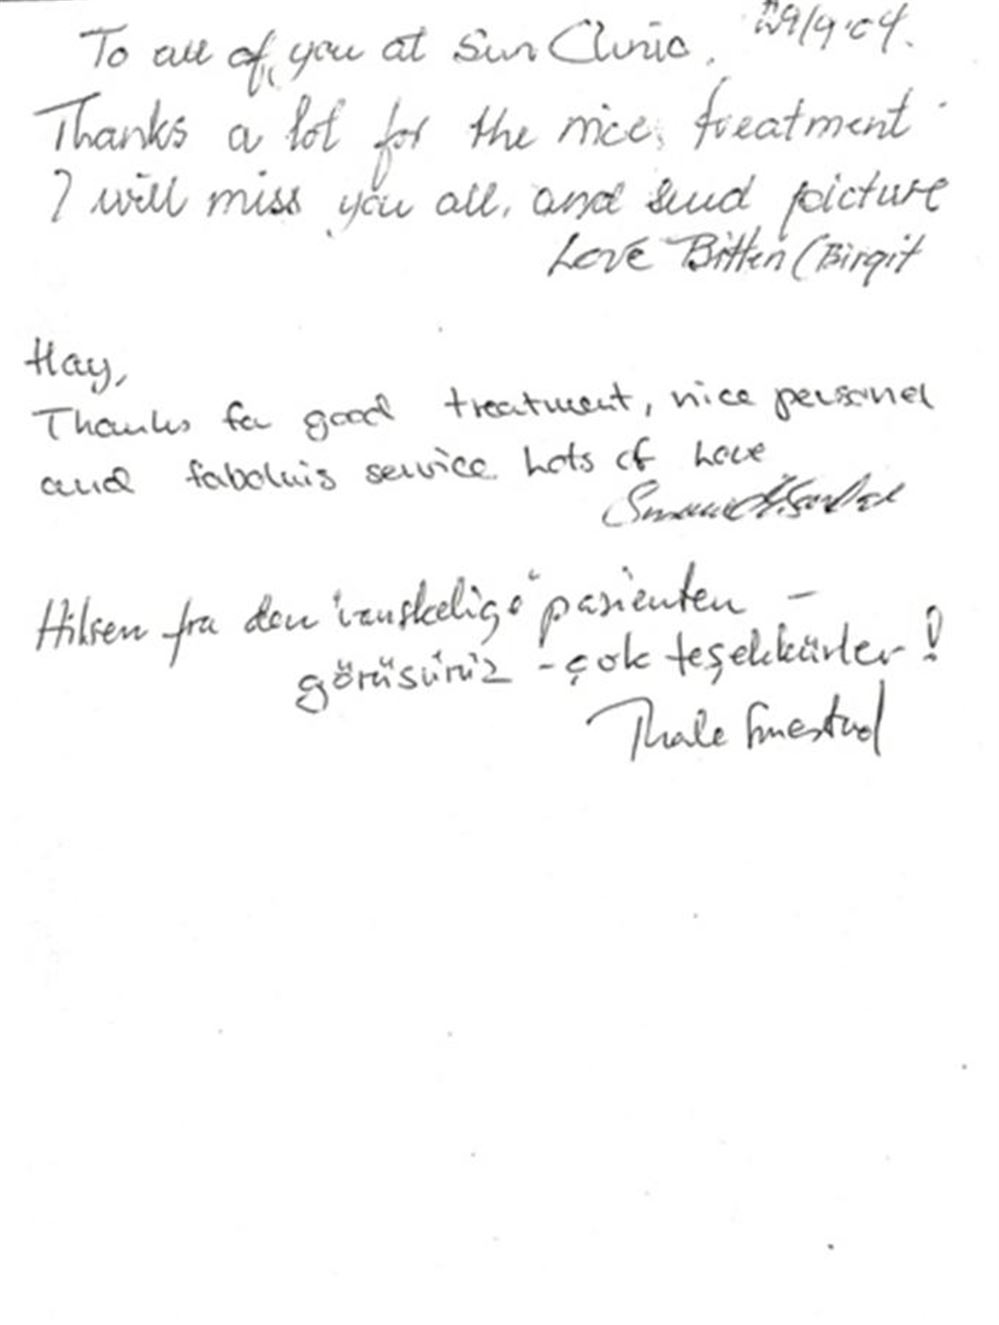 To all of you at Sun Clinic. 29/9·04.
Thanks a lot for the nice treatment
I will miss you all, and send picture
Love Bitten (Birgit
Hay,
Thanks for good treatment, nice personel
and faboluis service Lots of Love
Hilsen fra den "vanskelige" pasienten -
görüsürüz - çok teşekkürler!
Thale